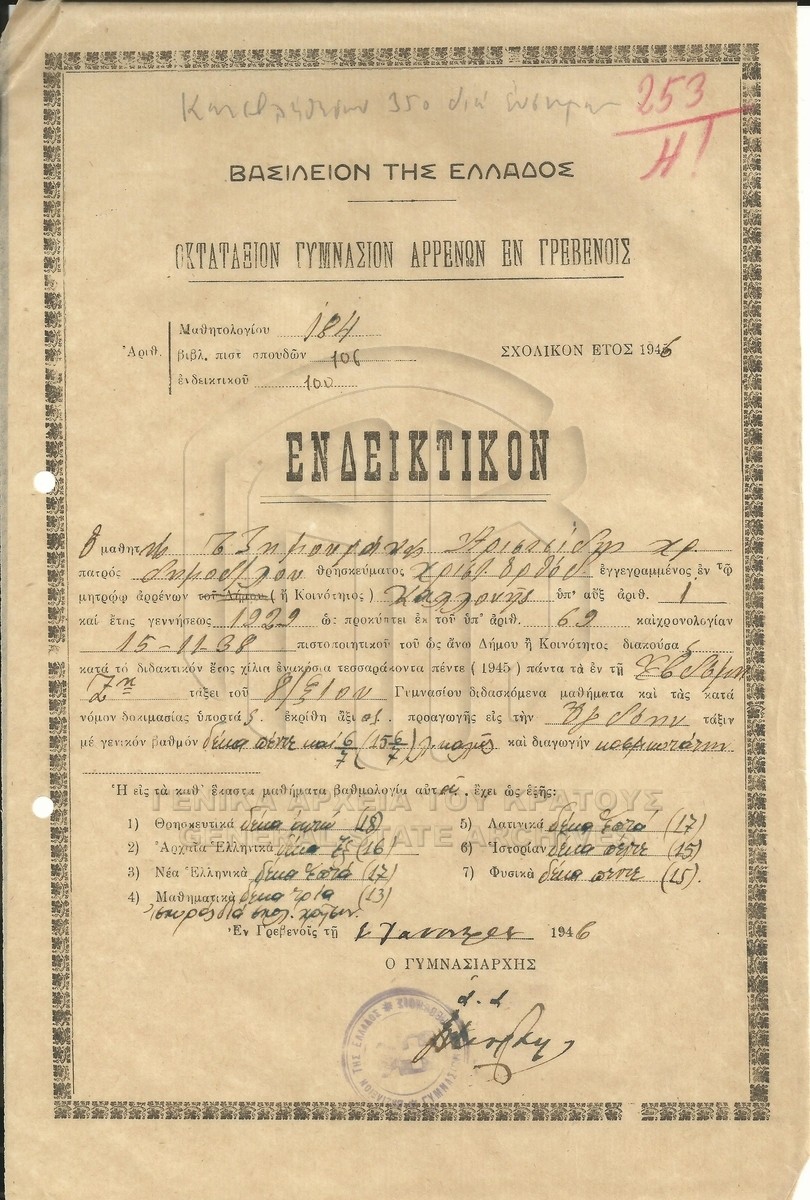 253
Η
ΒΑΣΙΛΕΙΟΝ ΤΗΣ ΕΛΛΑΔΟΣ
ΟΚΤΑΤΑΞΙΟΝ ΓΥΜΝΑΣΙΟΝ ΑΡΡΕΝΩΝ ΕΝ ΓΡΕΒΕΝΟΙΣ
Ἀριθ.
Μαθητολογίου 184
βιβλ. πιστ σπουδῶν 106
ἐνδεικτικοῦ 100
ΣΧΟΛΙΚΟΝ ΕΤΟΣ 1946
ΕΝΔΕΙΚΤΙΚΟΝ
Ὁ μαθητὴς Ἀριστείδης Χρ.
πατρὸς θρησκεύματος Χριστ. Ὀρθόδ. ἐγγεγραμμένος ἐν τῷ
μητρώῳ ἀρρένων τοῦ Δήμου (ἢ Κοινότητος) Καλλονῆς ὑπ' αὔξ ἀριθ. 1
καὶ ἔτος γεννήσεως 1929 ὡς προκύπτει ἐκ τοῦ ὑπ' ἀριθ. 69 καὶχρονολογίαν
15-11-38 πιστοποιητικοῦ τοῦ ὡς ἄνω Δήμου ἢ Κοινότητος διακούσας
κατὰ τὸ διδακτικὸν ἔτος χίλια ἐνακόσια τεσσαράκοντα πέντε (1945) πάντα τὰ ἐν τῇ Ἑβδόμῃ
Ζῃ τάξει τοῦ 8/ξίου Γυμνασίου διδασκόμενα μαθήματα καὶ τὰς κατὰ
νόμον δοκιμασίας ὑποστὰς ἐκρίθη ἄξιος προαγωγῆς εἰς τὴν Ὀγδόην τάξιν
μὲ γενικὸν βαθμὸν δέκα πέντε καὶ 6/7 (15 6/7) καλῶς καὶ διαγωγὴν κοσμιωτάτην
Ἡ εἰς τὰ καθ' ἕκαστα μαθήματα βαθμολογία αὐτοῦ ἔχει ὡς ἑξῆς:
ΓΕΝΙΚΑ ΑΡΧΕΙΑ ΤΟΥ ΚΡΑΤΟΥΣ
1) Θρησκευτικὰ δέκα ὀκτώ (18)
2) Ἀρχαῖα Ἑλληνικὰ δέκα ἕξ (16)
3) Νέα Ἑλληνικὰ δέκα ἑπτά (17)
4) Μαθηματικὰ δέκα τρία (13)
5) Λατινικὰ δέκα ἑπτά (17)
6) Ἱστορίαν δέκα πέντε (15)
7) Φυσικὰ δέκα πέντε (15).
Ἐν Γρεβενοῖς τῇ 1946
Ο ΓΥΜΝΑΣΙΑΡΧΗΣ